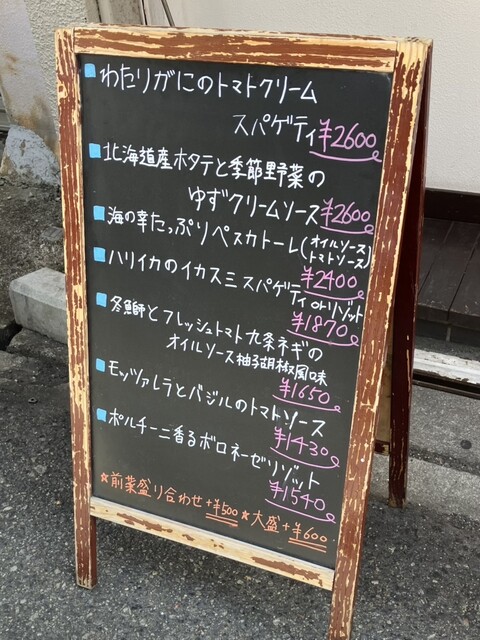 わたりがにのトマトクリーム
スパゲティ ¥2600
北海道産ホタテと季節野菜の
ゆずクリームソース ¥2600
海の幸たっぷりペスカトーレ(オイルソース トマトソース)
¥2400
ハリイカのイカスミスパゲティ orリゾット
¥1870
冬鰤とフレッシュトマト九条ネギの
オイルソース柚子胡椒風味
¥1650
モッツァレラとバジルのトマトソース
¥1430
ポルチーニ香るボロネーゼリゾット
¥1540
★前菜盛り合わせ+¥500 ★大盛+¥600